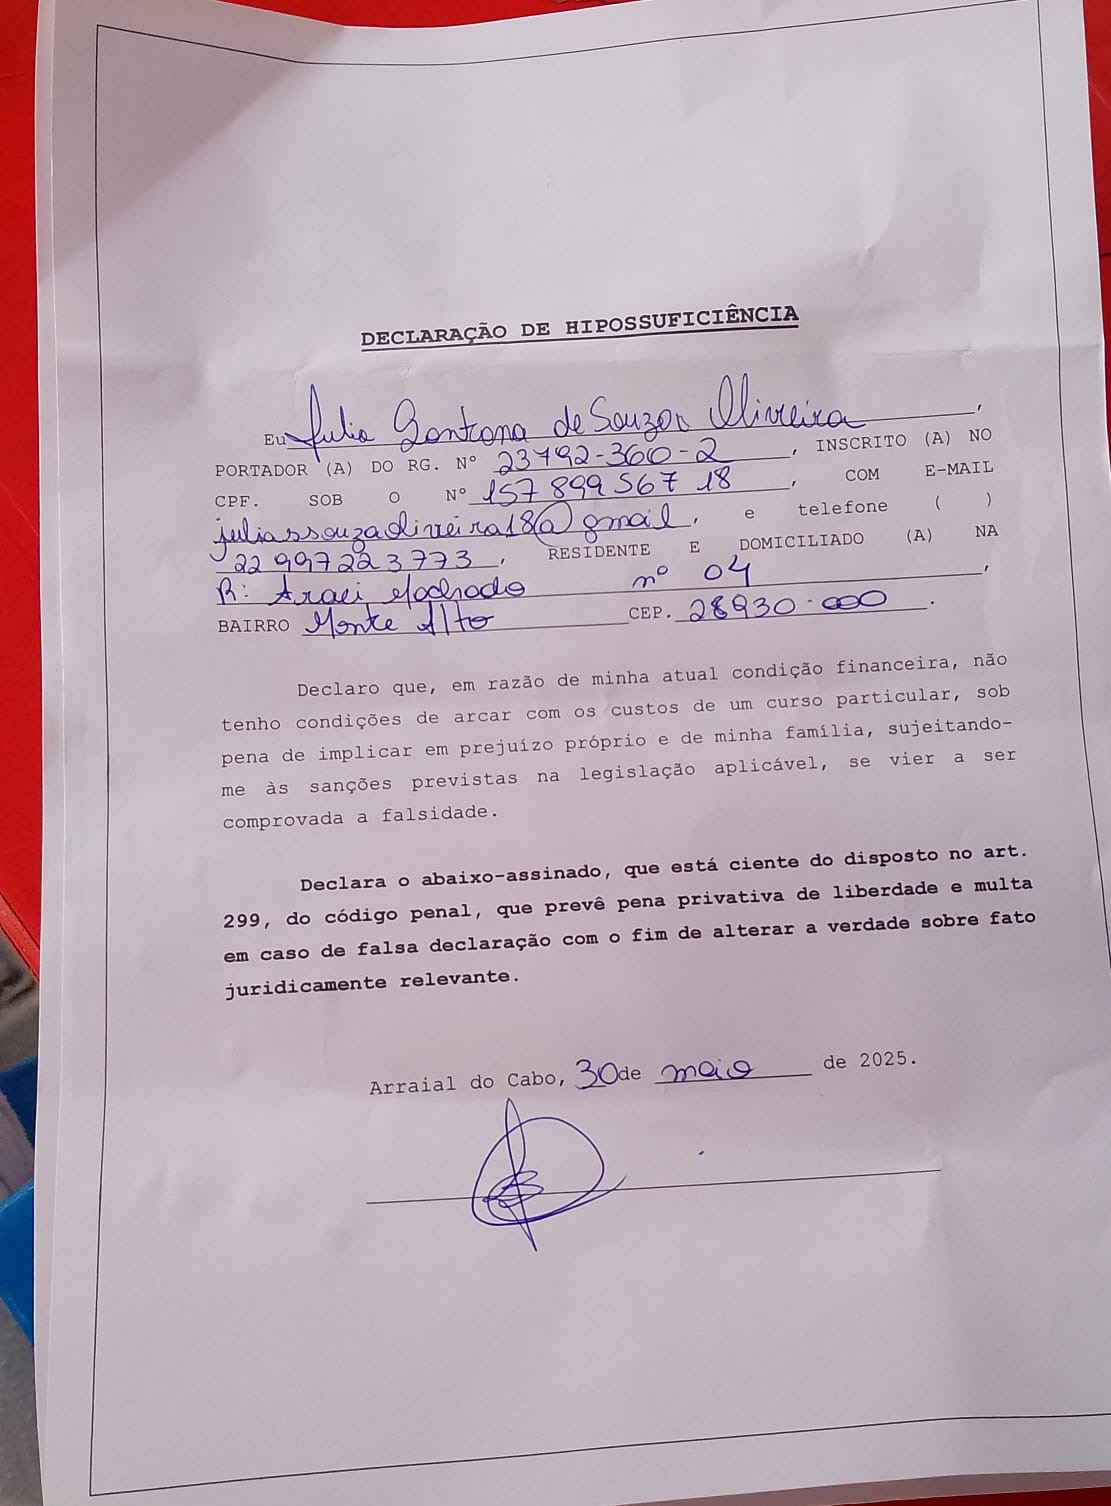 DECLARAÇÃO DE HIPOSSUFICIÊNCIA
Eu Julia Santana de Souza Oliveira,
PORTADOR (A) DO RG. Nº 23792-360-2, INSCRITO (A) NO
CPF. SOB O Nº 157 899 567 18, COM E-MAIL
juliassouzaoliveira18@gmail, e telefone ( )
22 997223773, RESIDENTE E DOMICILIADO (A) NA
R: Araci Machado nº 04,
BAIRRO Monte Alto CEP. 28930-000.
Declaro que, em razão de minha atual condição financeira, não
tenho condições de arcar com os custos de um curso particular, sob
pena de implicar em prejuízo próprio e de minha família, sujeitando-
me às sanções previstas na legislação aplicável, se vier a ser
comprovada a falsidade.
Declara o abaixo-assinado, que está ciente do disposto no art.
299, do código penal, que prevê pena privativa de liberdade e multa
em caso de falsa declaração com o fim de alterar a verdade sobre fato
juridicamente relevante.
Arraial do Cabo, 30 de maio de 2025.